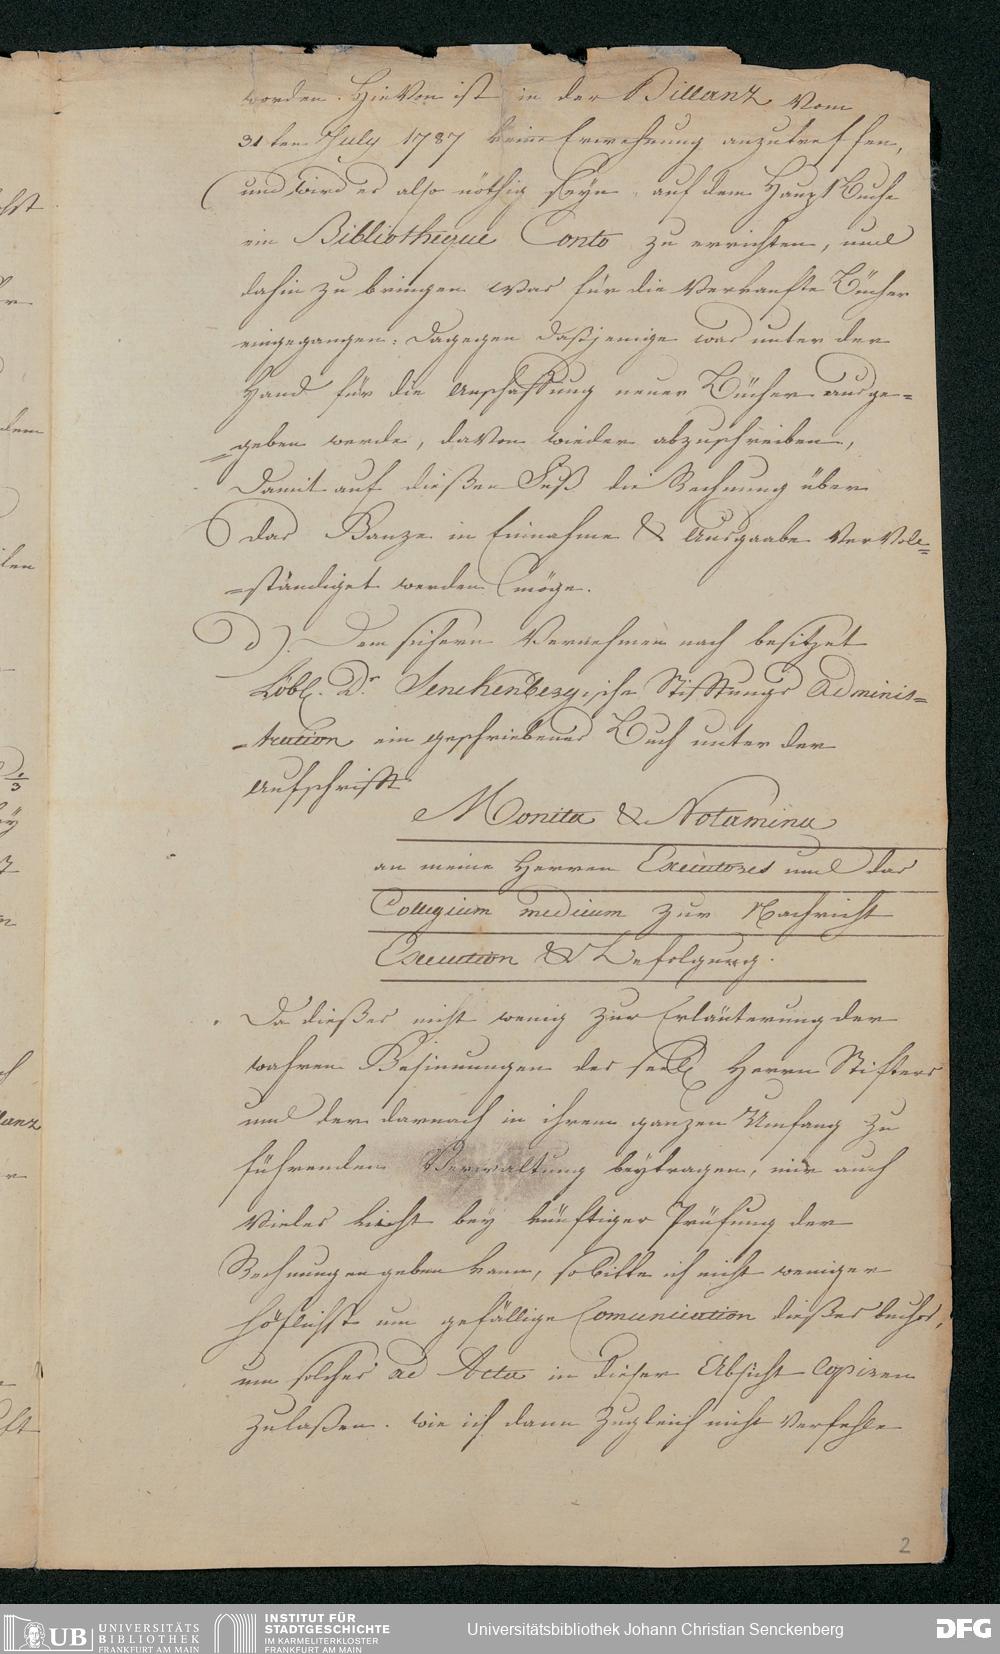 worden. Hievon ist in der Billanz vom
31ten July 1787 keine Erwehnung anzutreffen,
und wird es also nöthig seyn, auf dem Haupt Buche
ein Bibliotheque Conto zu errichten, und
dahin zu bringen was für die verkaufte Bücher
eingegangen; dagegen dasjenige was unter der
Hand für die Anschaffung neuer Bücher ausge-
=geben werde, davon wieder abzuschreiben,
damit auf dießen Fuß die Rechnung über
das Ganze in Einnahme & Ausgaabe vervoll=
=ständiget werden möge.
d). Dem sichern Vernehmen nach besitzet
Löbl. Dr. Senckenberg.ische Stifftungs Adminis=
=tration ein geschriebenes Buch unter der
Aufschrifft
Monita & Notamina
an meine Herren Executores und das
Collegium medicum zur Nachricht
Execution & Befolgung.
Da dießes nicht wenig zur Erläuterung der
wahren Gesinnungen des seel. Herrn Stifters
und der darnach in ihrem ganzen Umfang zu
führenden Verwaltung beytragen, mir auch
vieles Licht bey künftiger Prüfung der
Rechnungen geben kann, so bitte ich nicht weniger
höflichst um gefällige Comunication dießes buches,
um solches ad Acta in dieser Absicht Copiren
zulaßen. wie ich dann zugleich nicht verfehle
2
UB UNIVERSITÄTS
BIBLIOTHEK
FRANKFURT AM MAIN
INSTITUT FÜR
STADTGESCHICHTE
IM KARMELITERKLOSTER
FRANKFURT AM MAIN
Universitätsbibliothek Johann Christian Senckenberg
DFG